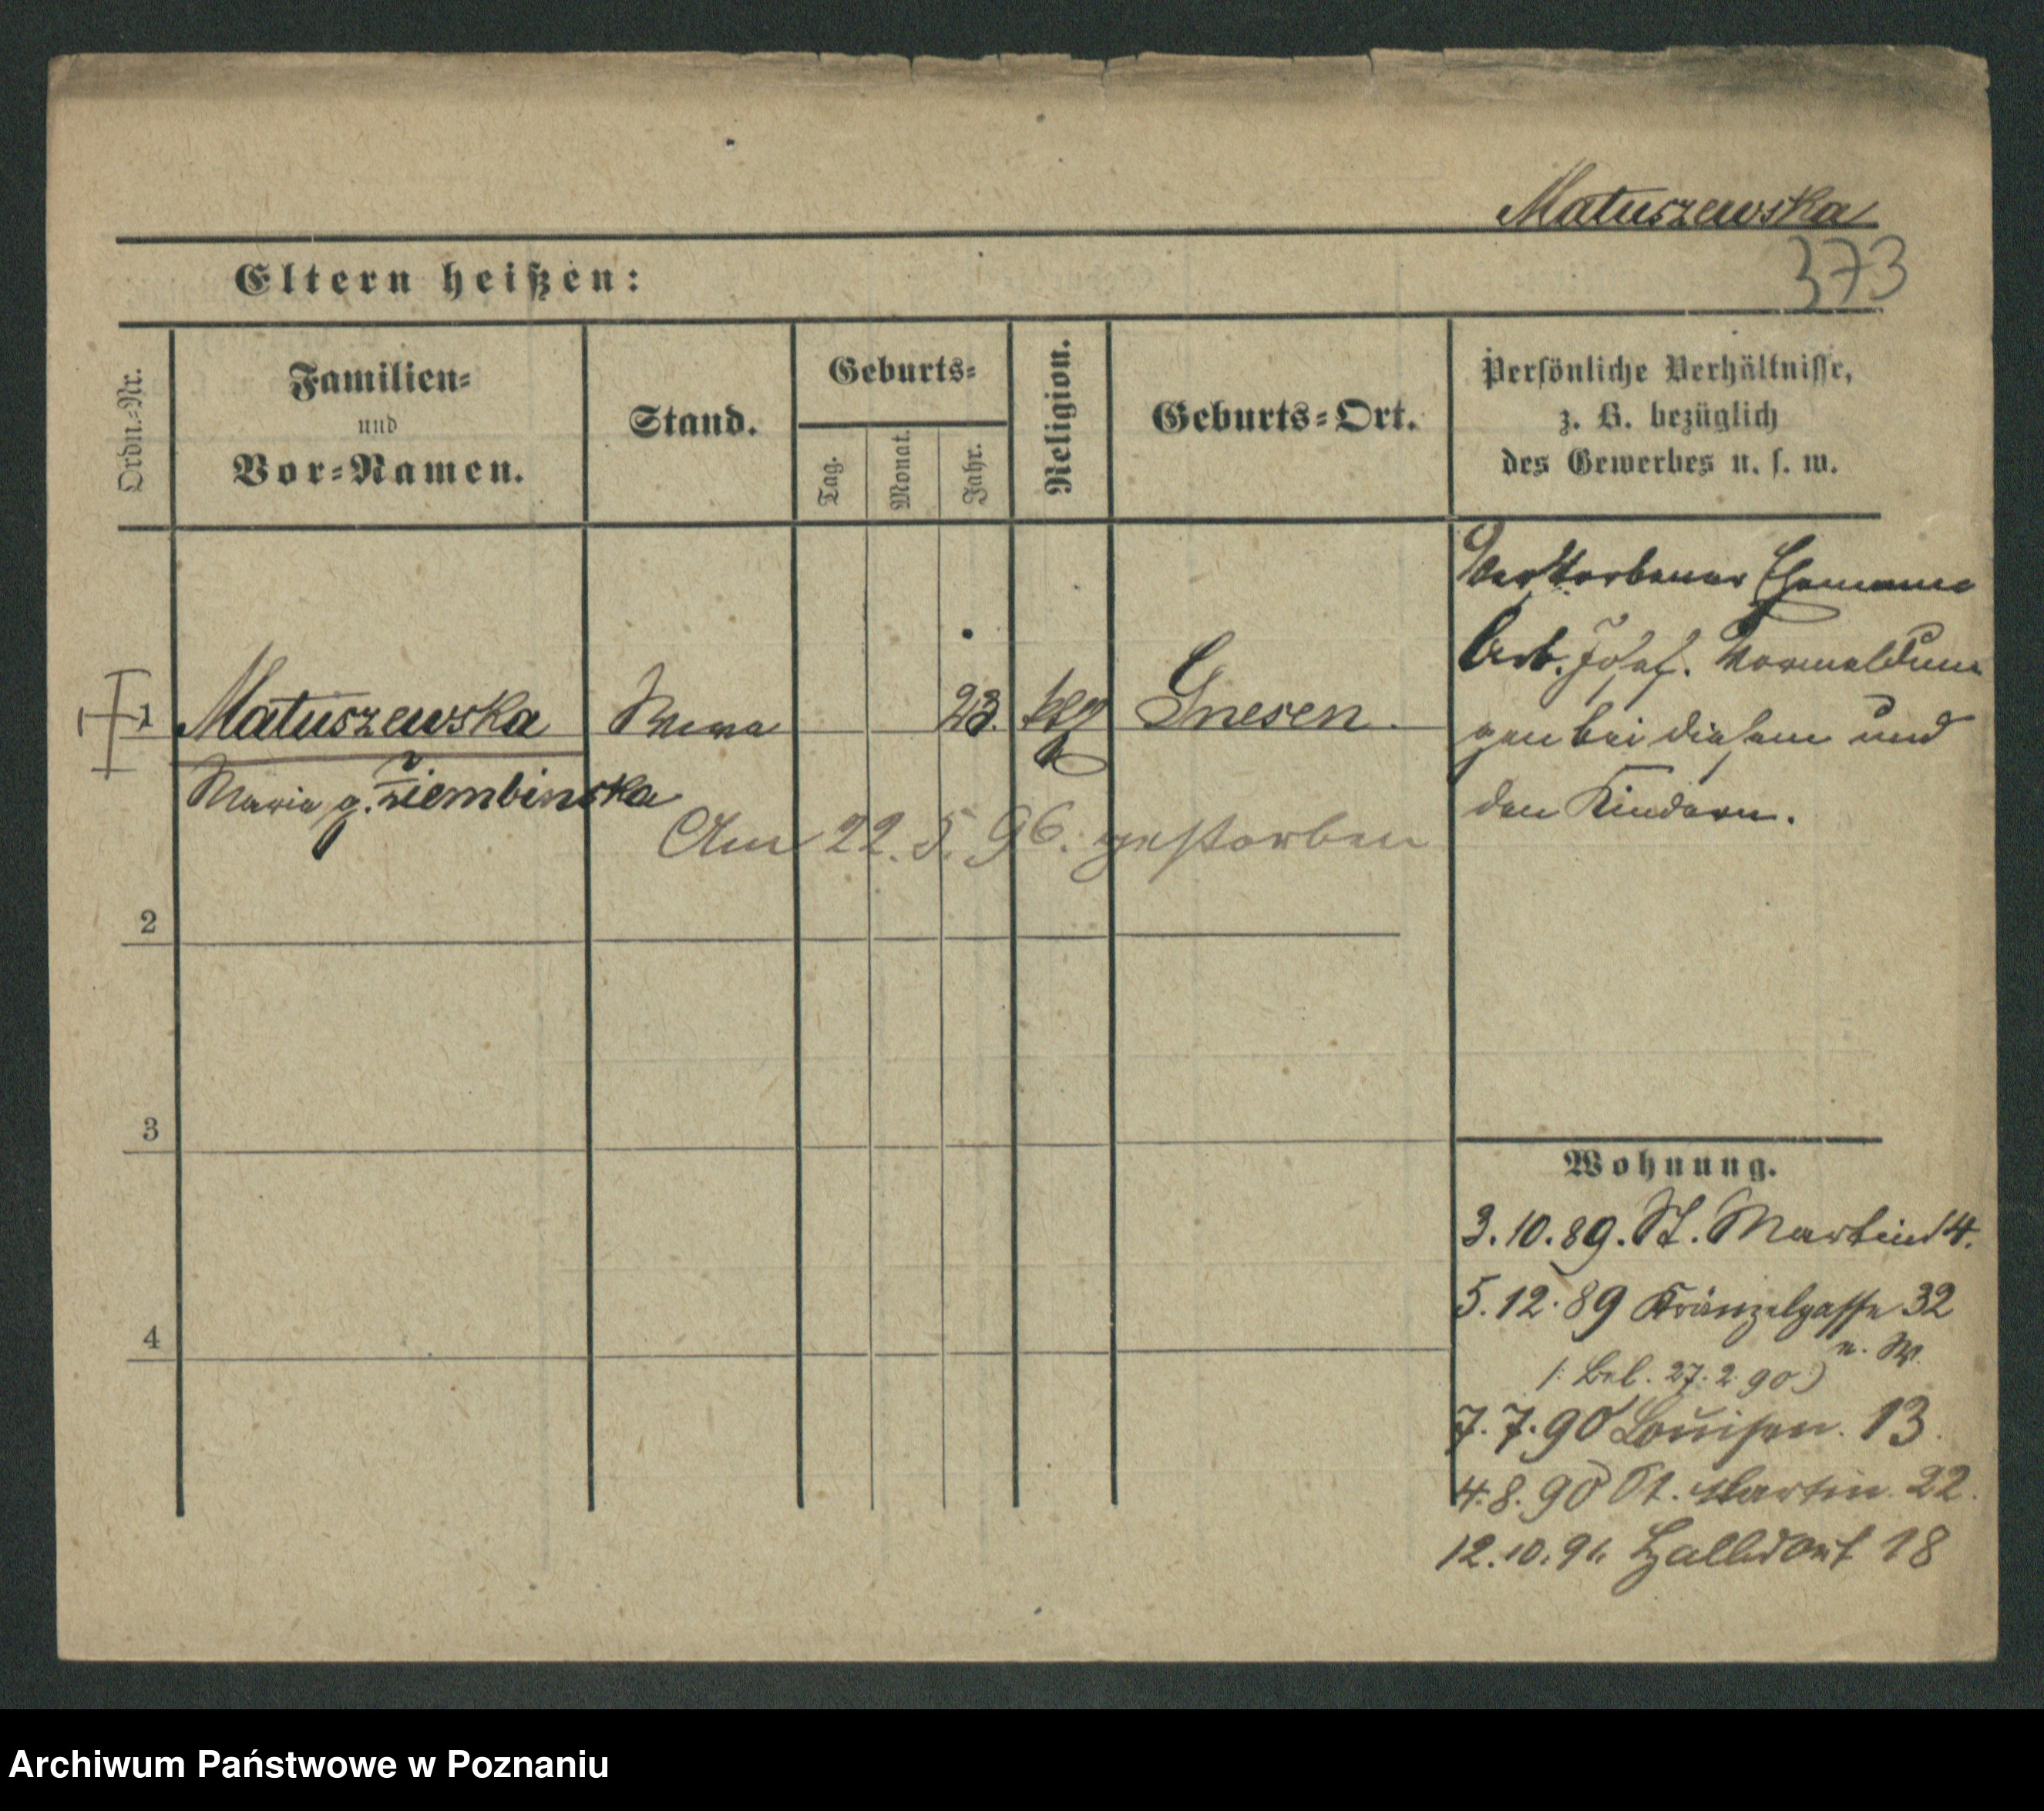 Matuszewska
373
Eltern heißen:
Ordn.-Nr.
Familien-
und
Vor-Namen.
Stand.
Geburts-
Tag.
Monat.
Jahr.
Religion.
Geburts-Ort.
Persönliche Verhältnisse,
z. B. bezüglich
des Gewerbes u. s. w.
1 Matuszewska Wwe 23. Gnesen.
Maria g. Ziembinska
Am 22. 5. 96. gestorben
Verstorbener Ehemann
Arb. Josef. Vormeldun
gen bei diesem und
den Kindern.
2
3
4
Wohnung.
3.10.89. St. Martin 14.
5.12.89 Kränzelgasse 32
u. W.
(: Bel. 27.2.90)
7.7.90 Louisen. 13
4.8.90 St. Martin 22.
12.10.91. Halbdorf 18
Archiwum Państwowe w Poznaniu